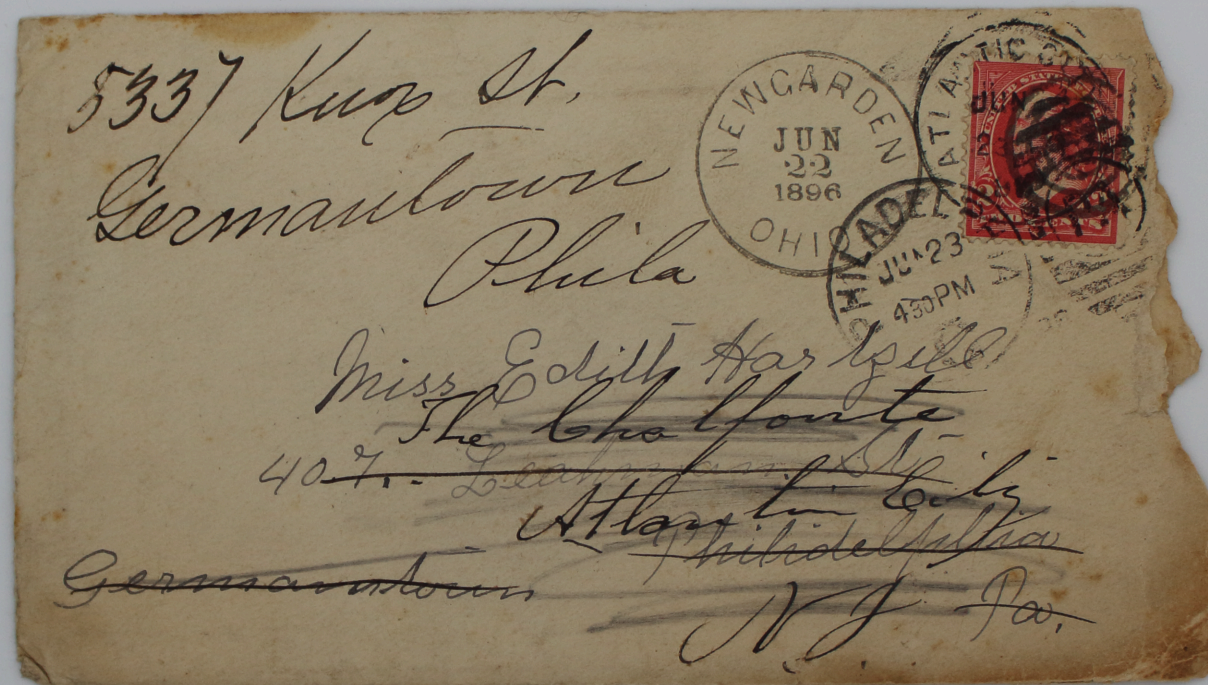 5337 Knox St.
Germantown
Phila
NEWGARDEN
JUN
22
1896
OHIO
ATLANTIC CITY
JUN
PHILADELPHIA
JUN 23
430PM
Miss Edith Hartzell
The Chalfonte
407. St.
Atlantic City
Philidelphia
Germantown
N J Pa.